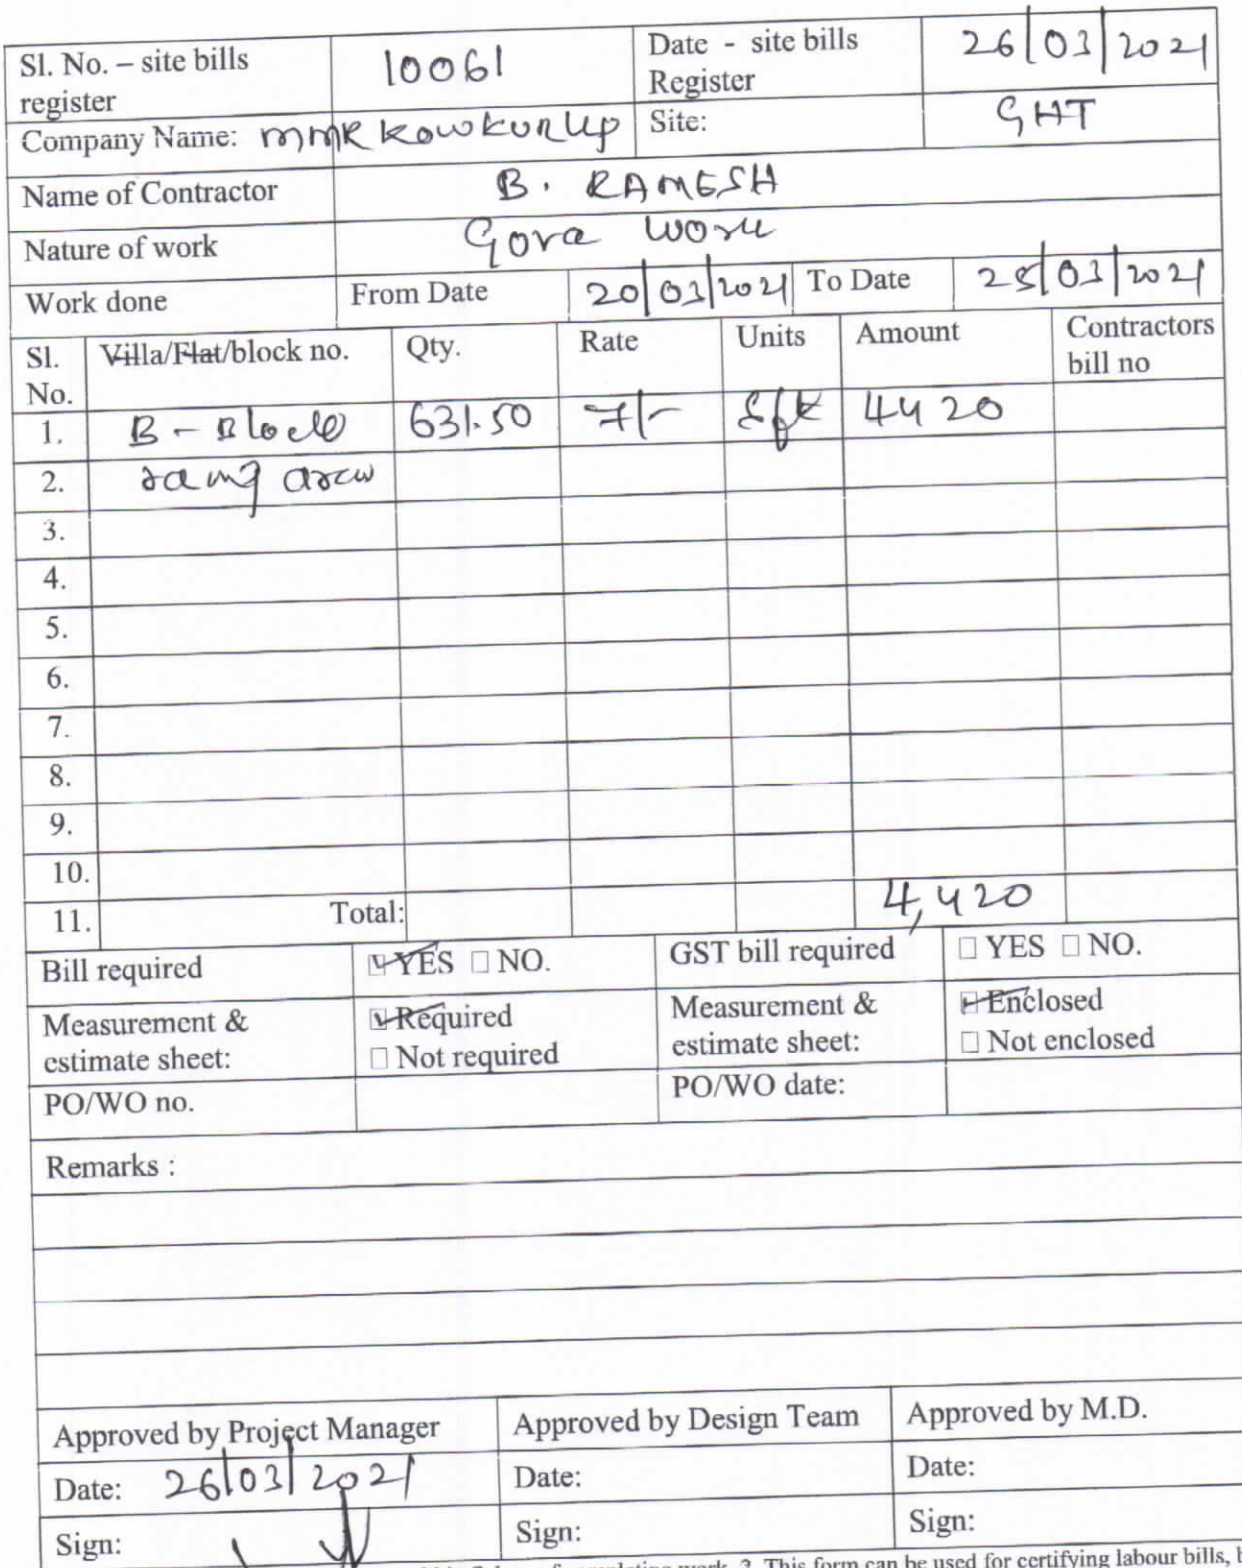 Sl. No. – site bills register 10061 Date - site bills Register 26/03/2021
Company Name: MMR KOWKUR LLP Site: GHT
Name of Contractor B. RAMESH
Nature of work Gova work
Work done From Date 20/03/2021 To Date 25/03/2021
Sl. No. Villa/Flat/block no. Qty. Rate Units Amount Contractors bill no
1. B - Block 631.50 7/- sft 4420
2.
3.
4.
5.
6.
7.
8.
9.
10.
11. Total: 4,420
Bill required ☑ YES ☐ NO. GST bill required ☐ YES ☐ NO.
Measurement & estimate sheet: ☑ Required ☐ Not required Measurement & estimate sheet: ☑ Enclosed ☐ Not enclosed
PO/WO no. PO/WO date:
Remarks :
Approved by Project Manager Approved by Design Team Approved by M.D.
Date: 26/03/2021 Date: Date:
Sign: Sign: Sign:
work. 3. This form can be used for certifying labour bills,